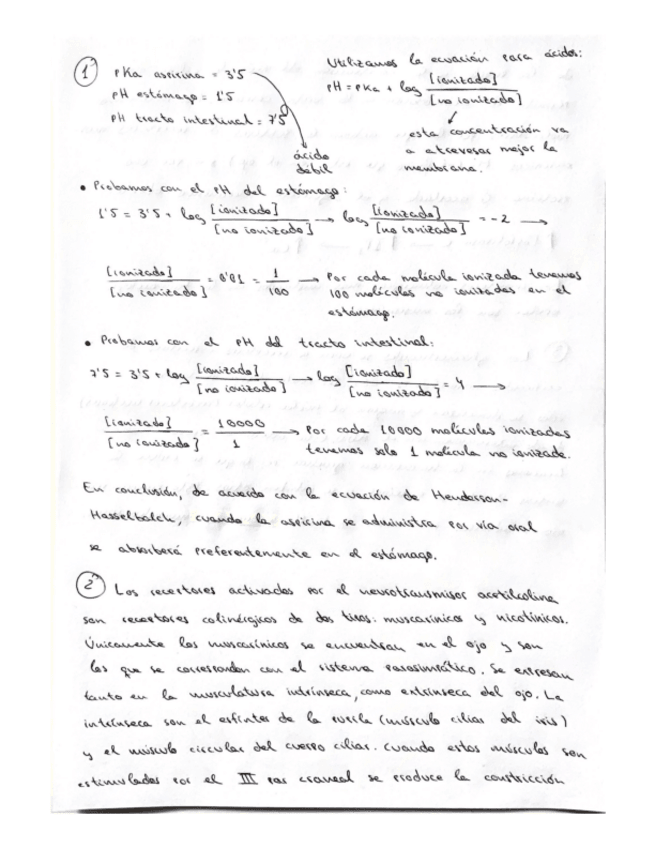 1
pKa aspirina = 3'5
pH estómago = 1'5
pH tracto intestinal = 7'5
ácido
débil
Utilizamos la ecuación para ácidos:
pH = pKa + log [ionizado] / [no ionizado]
esta concentración va
a atravesar mejor la
membrana.
• Probamos con el pH del estómago:
1'5 = 3'5 + log [ionizado] / [no ionizado] → log [ionizado] / [no ionizado] = -2 →
[ionizado] / [no ionizado] = 0'01 = 1 / 100 → Por cada molécula ionizada tenemos
100 moléculas no ionizadas en el
estómago.
• Probamos con el pH del tracto intestinal:
7'5 = 3'5 + log [ionizado] / [no ionizado] → log [ionizado] / [no ionizado] = 4 →
[ionizado] / [no ionizado] = 10000 / 1 → Por cada 10000 moléculas ionizadas
tenemos solo 1 molécula no ionizada.
En conclusión, de acuerdo con la ecuación de Henderson-
Hasselbalch, cuando la aspirina se administra por vía oral
se absorberá preferentemente en el estómago.
2 Los receptores activados por el neurotransmisor acetilcolina
son receptores colinérgicos de dos tipos: muscarínicos y nicotínicos.
Únicamente los muscarínicos se encuentran en el ojo y son
los que se corresponden con el sistema parasimpático. Se expresan
tanto en la musculatura intrínseca, como extrínseca del ojo. La
intrínseca son el esfínter de la pupila (músculo ciliar del iris)
y el músculo circular del cuerpo ciliar. Cuando estos músculos son
estimulados por el III par craneal se produce la constricción